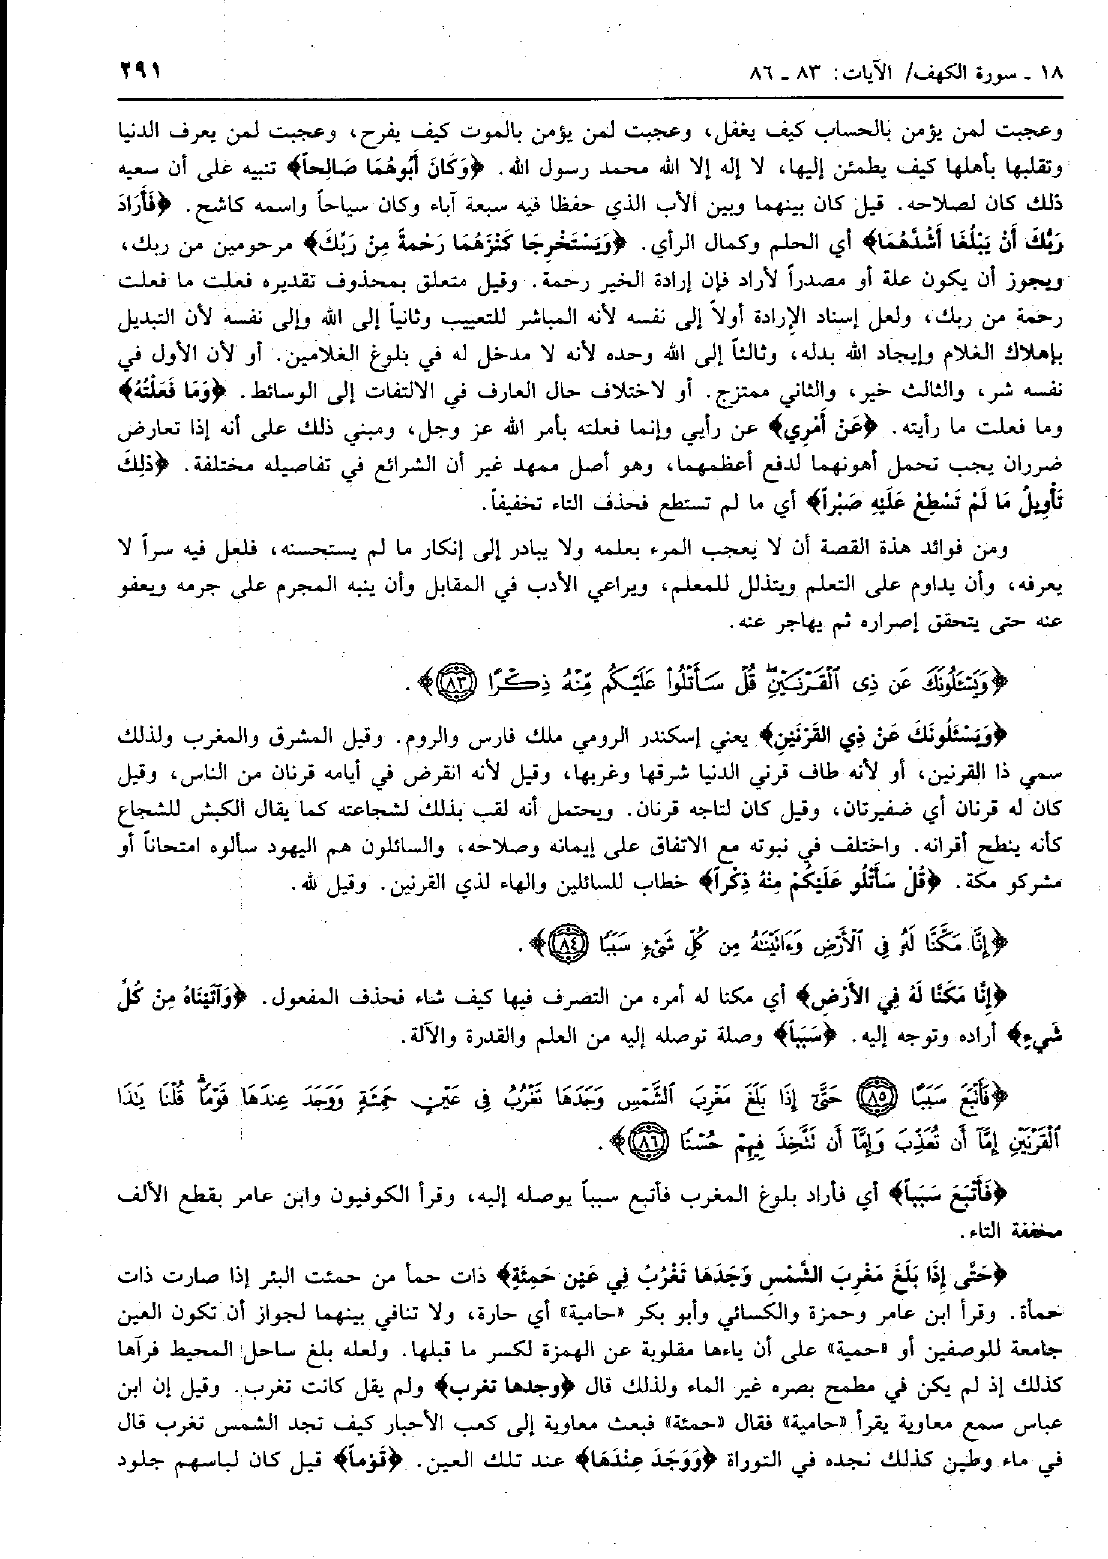 ١٨ ـ سورة الكهف/ الآيات: ٨٣ ـ ٨٦
٢٩١
وعجبت لمن يؤمن بالحساب كيف يغفل، وعجبت لمن يؤمن بالموت كيف يفرح، وعجبت لمن يعرف الدنيا
وتقلبها بأهلها كيف يطمئن إليها، لا إله إلا الله محمد رسول الله. ﴿وَكَانَ أَبُوهُمَا صَالِحاً﴾ تنبيه على أن سعيه
ذلك كان لصلاحه. قيل كان بينهما وبين الأب الذي حفظا فيه سبعة آباء وكان سياحاً واسمه كاشح. ﴿فَأَرَادَ
رَبُّكَ أَنْ يَبْلُغَا أَشُدَّهُمَا﴾ أي الحلم وكمال الرأي. ﴿وَيَسْتَخْرِجَا كَنْزَهُمَا رَحْمَةً مِنْ رَبِّكَ﴾ مرحومين من ربك،
ويجوز أن يكون علة أو مصدراً لأراد فإن إرادة الخير رحمة. وقيل متعلق بمحذوف تقديره فعلت ما فعلت
رحمة من ربك، ولعل إسناد الإرادة أولاً إلى نفسه لأنه المباشر للتعييب وثانياً إلى الله وإلى نفسه لأن التبديل
بإهلاك الغلام وإيجاد الله بدله، وثالثاً إلى الله وحده لأنه لا مدخل له في بلوغ الغلامين. أو لأن الأول في
نفسه شر، والثالث خير، والثاني ممتزج. أو لاختلاف حال العارف في الالتفات إلى الوسائط. ﴿وَمَا فَعَلْتُهُ﴾
وما فعلت ما رأيته. ﴿عَنْ أَمْرِي﴾ عن رأيي وإنما فعلته بأمر الله عز وجل، ومبني ذلك على أنه إذا تعارض
ضرران يجب تحمل أهونهما لدفع أعظمهما، وهو أصل ممهد غير أن الشرائع في تفاصيله مختلفة. ﴿ذٰلِكَ
تَأْوِيلُ مَا لَمْ تَسْطِعْ عَلَيْهِ صَبْراً﴾ أي ما لم تستطع فحذف التاء تخفيفاً.
ومن فوائد هذة القصة أن لا يعجب المرء بعلمه ولا يبادر إلى إنكار ما لم يستحسنه، فلعل فيه سراً لا
يعرفه، وأن يداوم على التعلم ويتذلل للمعلم، ويراعي الأدب في المقابل وأن ينبه المجرم على جرمه ويعفو
عنه حتى يتحقق إصراره ثم يهاجر عنه.
﴿وَيَسْـَٔلُونَكَ عَن ذِى ٱلْقَرْنَيْنِۖ قُلْ سَأَتْلُوا۟ عَلَيْكُم مِّنْهُ ذِكْرًا ٨٣﴾.
﴿وَيَسْئَلُونَكَ عَنْ ذِي القَرْنَيْنِ﴾ يعني إسكندر الرومي ملك فارس والروم. وقيل المشرق والمغرب ولذلك
سمي ذا القرنين، أو لأنه طاف قرني الدنيا شرقها وغربها، وقيل لأنه انقرض في أيامه قرنان من الناس، وقيل
كان له قرنان أي ضفيرتان، وقيل كان لتاجه قرنان. ويحتمل أنه لقب بذلك لشجاعته كما يقال الكبش للشجاع
كأنه ينطح أقرانه. واختلف في نبوته مع الاتفاق على إيمانه وصلاحه، والسائلون هم اليهود سألوه امتحاناً أو
مشركو مكة. ﴿قُلْ سَأَتْلُو عَلَيْكُمْ مِنْهُ ذِكْراً﴾ خطاب للسائلين والهاء لذي القرنين. وقيل لله.
﴿إِنَّا مَكَّنَّا لَهُۥ فِى ٱلْأَرْضِ وَءَاتَيْنَٰهُ مِن كُلِّ شَىْءٍ سَبَبًا ٨٤﴾.
﴿إِنَّا مَكَّنَّا لَهُ فِي الأَرْضِ﴾ أي مكنا له أمره من التصرف فيها كيف شاء فحذف المفعول. ﴿وَآتَيْنَاهُ مِنْ كُلِّ
شَيءٍ﴾ أراده وتوجه إليه. ﴿سَبَباً﴾ وصلة توصله إليه من العلم والقدرة والآلة.
﴿فَأَتْبَعَ سَبَبًا ٨٥ حَتَّىٰٓ إِذَا بَلَغَ مَغْرِبَ ٱلشَّمْسِ وَجَدَهَا تَغْرُبُ فِى عَيْنٍ حَمِئَةٍ وَوَجَدَ عِندَهَا قَوْمًاۗ قُلْنَا يَٰذَا
ٱلْقَرْنَيْنِ إِمَّآ أَن تُعَذِّبَ وَإِمَّآ أَن نَتَّخِذَ فِيهِمْ حُسْنًا ٨٦﴾.
﴿فَأَتْبَعَ سَبَباً﴾ أي فأراد بلوغ المغرب فأتبع سبباً يوصله إليه، وقرأ الكوفيون وابن عامر بقطع الألف
مخففة التاء.
﴿حَتَّى إِذَا بَلَغَ مَغْرِبَ الشَّمْسِ وَجَدَهَا تَغْرُبُ فِي عَيْنٍ حَمِئَةٍ﴾ ذات حمأ من حمئت البئر إذا صارت ذات
حمأة. وقرأ ابن عامر وحمزة والكسائي وأبو بكر «حامية» أي حارة، ولا تنافي بينهما لجواز أن تكون العين
جامعة للوصفين أو «حمية» على أن ياءها مقلوبة عن الهمزة لكسر ما قبلها. ولعله بلغ ساحل المحيط فرآها
كذلك إذ لم يكن في مطمح بصره غير الماء ولذلك قال ﴿وجدها تغرب﴾ ولم يقل كانت تغرب. وقيل إن ابن
عباس سمع معاوية يقرأ «حامية» فقال «حمئة» فبعث معاوية إلى كعب الأحبار كيف تجد الشمس تغرب قال
في ماء وطين كذلك نجده في التوراة ﴿وَوَجَدَ عِنْدَهَا﴾ عند تلك العين. ﴿قَوْماً﴾ قيل كان لباسهم جلود